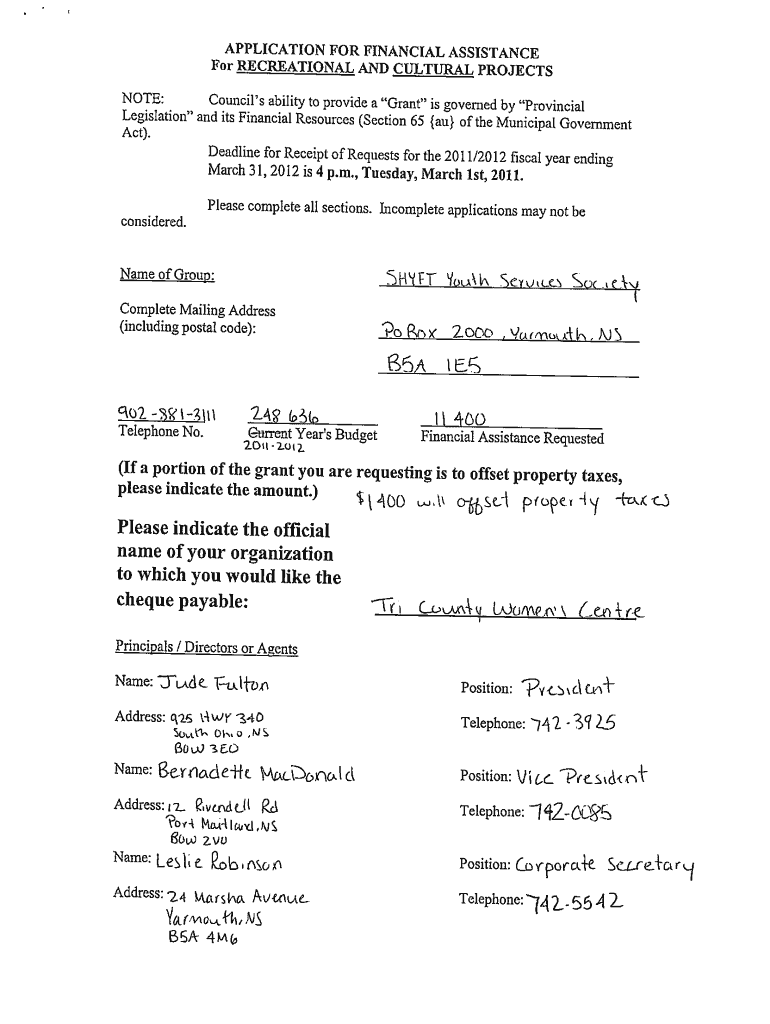 APPLICATION FOR FINANCIAL ASSISTANCE
For RECREATIONAL AND CULTURAL PROJECTS
NOTE: Council's ability to provide a "Grant" is governed by "Provincial
Legislation" and its Financial Resources (Section 65 {au} of the Municipal Government
Act).
Deadline for Receipt of Requests for the 2011/2012 fiscal year ending
March 31, 2012 is 4 p.m., Tuesday, March 1st, 2011.
Please complete all sections. Incomplete applications may not be
considered.
Name of Group: SHYFT Youth Services Society
Complete Mailing Address
(including postal code): Po Box 2000, Yarmouth, NS
B5A 1E5
902-881-3111 248 636 11 400
Telephone No. Current Year's Budget Financial Assistance Requested
2011-2012
(If a portion of the grant you are requesting is to offset property taxes,
please indicate the amount.) $1400 will offset property taxes
Please indicate the official
name of your organization
to which you would like the
cheque payable: Tri County Women's Centre
Principals / Directors or Agents
Name: Jude Fulton Position: President
Address: 925 HWY 340 Telephone: 742-3925
South Ohio, NS
B0W 3E0
Name: Bernadette MacDonald Position: Vice President
Address: 12 Rivendell Rd Telephone: 742-0085
Port Maitland, NS
B0W 2V0
Name: Leslie Robinson Position: Corporate Secretary
Address: 24 Marsha Avenue Telephone: 742-5542
Yarmouth, NS
B5A 4M6